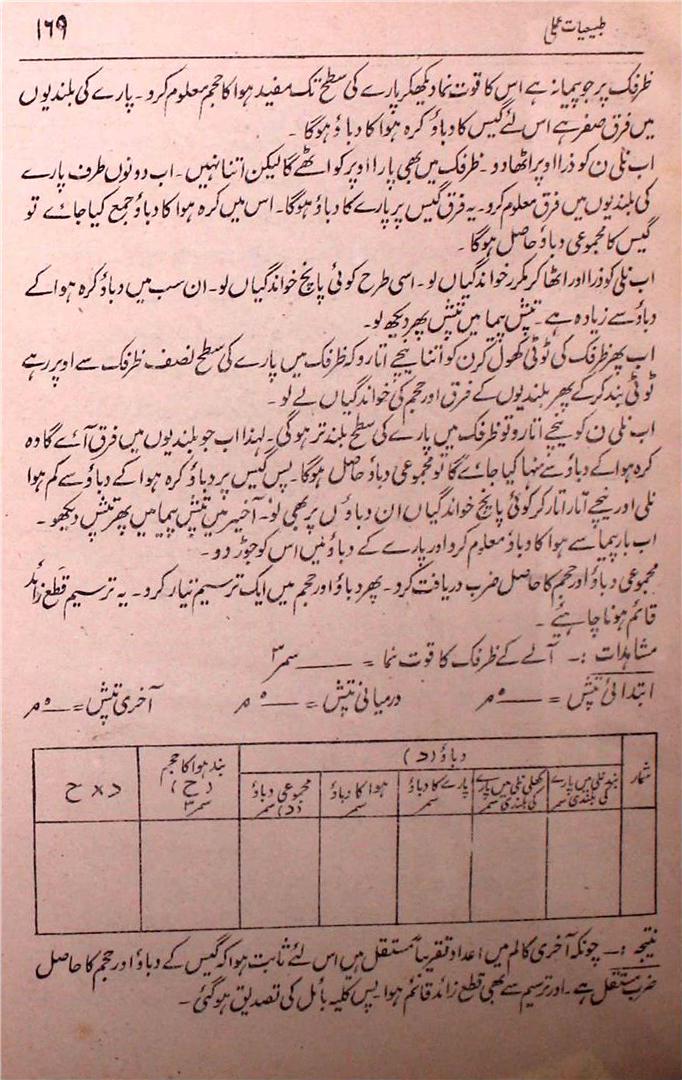 طبیعیات عملی
۱۶۹
ظرفک پر جو پیمانہ ہے اس کا قوت نما دیکھکر پارے کی سطح تک مفید ہوا کا حجم معلوم کرو۔ پارے کی بلندیوں
میں فرق صفر ہے اس لئے گیس کا دباؤ کرہ ہوا کا دباؤ ہوگا۔
اب نلی ن کو ذرا اوپر اٹھا دو۔ ظرفک میں بھی پارا اوپر کو اٹھے گا لیکن اتنا نہیں۔ اب دونوں طرف پارے
کی بلندیوں میں فرق معلوم کرو۔ یہ فرق گیس پر پارے کا دباؤ ہوگا۔ اس میں کرہ ہوا کا دباؤ جمع کیا جائے تو
گیس کا مجموعی دباؤ حاصل ہوگا۔
اب نلی کو ذرا اور اٹھا کر مکرر خواندگیاں لو۔ اسی طرح کوئی پانچ خواندگیاں لو۔ ان سب میں دباؤ کرہ ہوا کے
دباؤ سے زیادہ ہے۔ تپش پیما میں تپش پھر دیکھ لو۔
اب پھر ظرفک کی ٹوٹی کھول کر ن کو اتنا نیچے اتارو کہ ظرفک میں پارے کی سطح نصف ظرفک سے اوپر رہے
ٹوٹی بند کر کے پھر بلندیوں کے فرق اور حجم کی خواندگیاں لے لو۔
اب نلی ن کو نیچے اتارو تو ظرفک میں پارے کی سطح بلند تر ہوگی۔ لہذا اب جو بلندیوں میں فرق آئے گا وہ
کرہ ہوا کے دباؤ سے منہا کیا جائے گا تو مجموعی دباؤ حاصل ہوگا۔ پس گیس پر دباؤ کرہ ہوا کے دباؤ سے کم ہوا
نلی اور نیچے اتار اتار کر کوئی پانچ خواندگیاں ان دباوٴں پر بھی لو۔ آخیر میں تپش پیما میں پھر تپش دیکھو۔
اب بار پیما سے ہوا کا دباؤ معلوم کرو اور پارے کے دباؤ میں اس کو جوڑ دو۔
مجموعی دباؤ اور حجم کا حاصل ضرب دریافت کرو۔ پھر دباؤ اور حجم میں ایک ترسیم تیار کرو۔ یہ ترسیم قطع زائد
قائم ہونا چاہئے۔
مشاہدات :۔ آلے کے ظرفک کا قوت نما = ــــــ سمر۳
ابتدائی تپش = ــــ°مر درمیانی تپش = ــــ°مر آخری تپش = ــــ°مر
شمار
دباؤ (د)
بند نلی میں پارے کی بلندی سمر
کھلی نلی میں پارے کی بلندی سمر
پارے کا دباؤ سمر
ہوا کا دباؤ سمر
مجموعی دباؤ (د) سمر
بند ہوا کا حجم (ح) سمر۳
د × ح
نتیجہ :۔ چونکہ آخری کالم میں اعداد تقریباً مستقل ہیں اس لئے ثابت ہوا کہ گیس کے دباؤ اور حجم کا حاصل
ضرب مستقل ہے۔ اور ترسیم سے بھی قطع زائد قائم ہوا۔ پس کلیہ بائل کی تصدیق ہوگئی۔